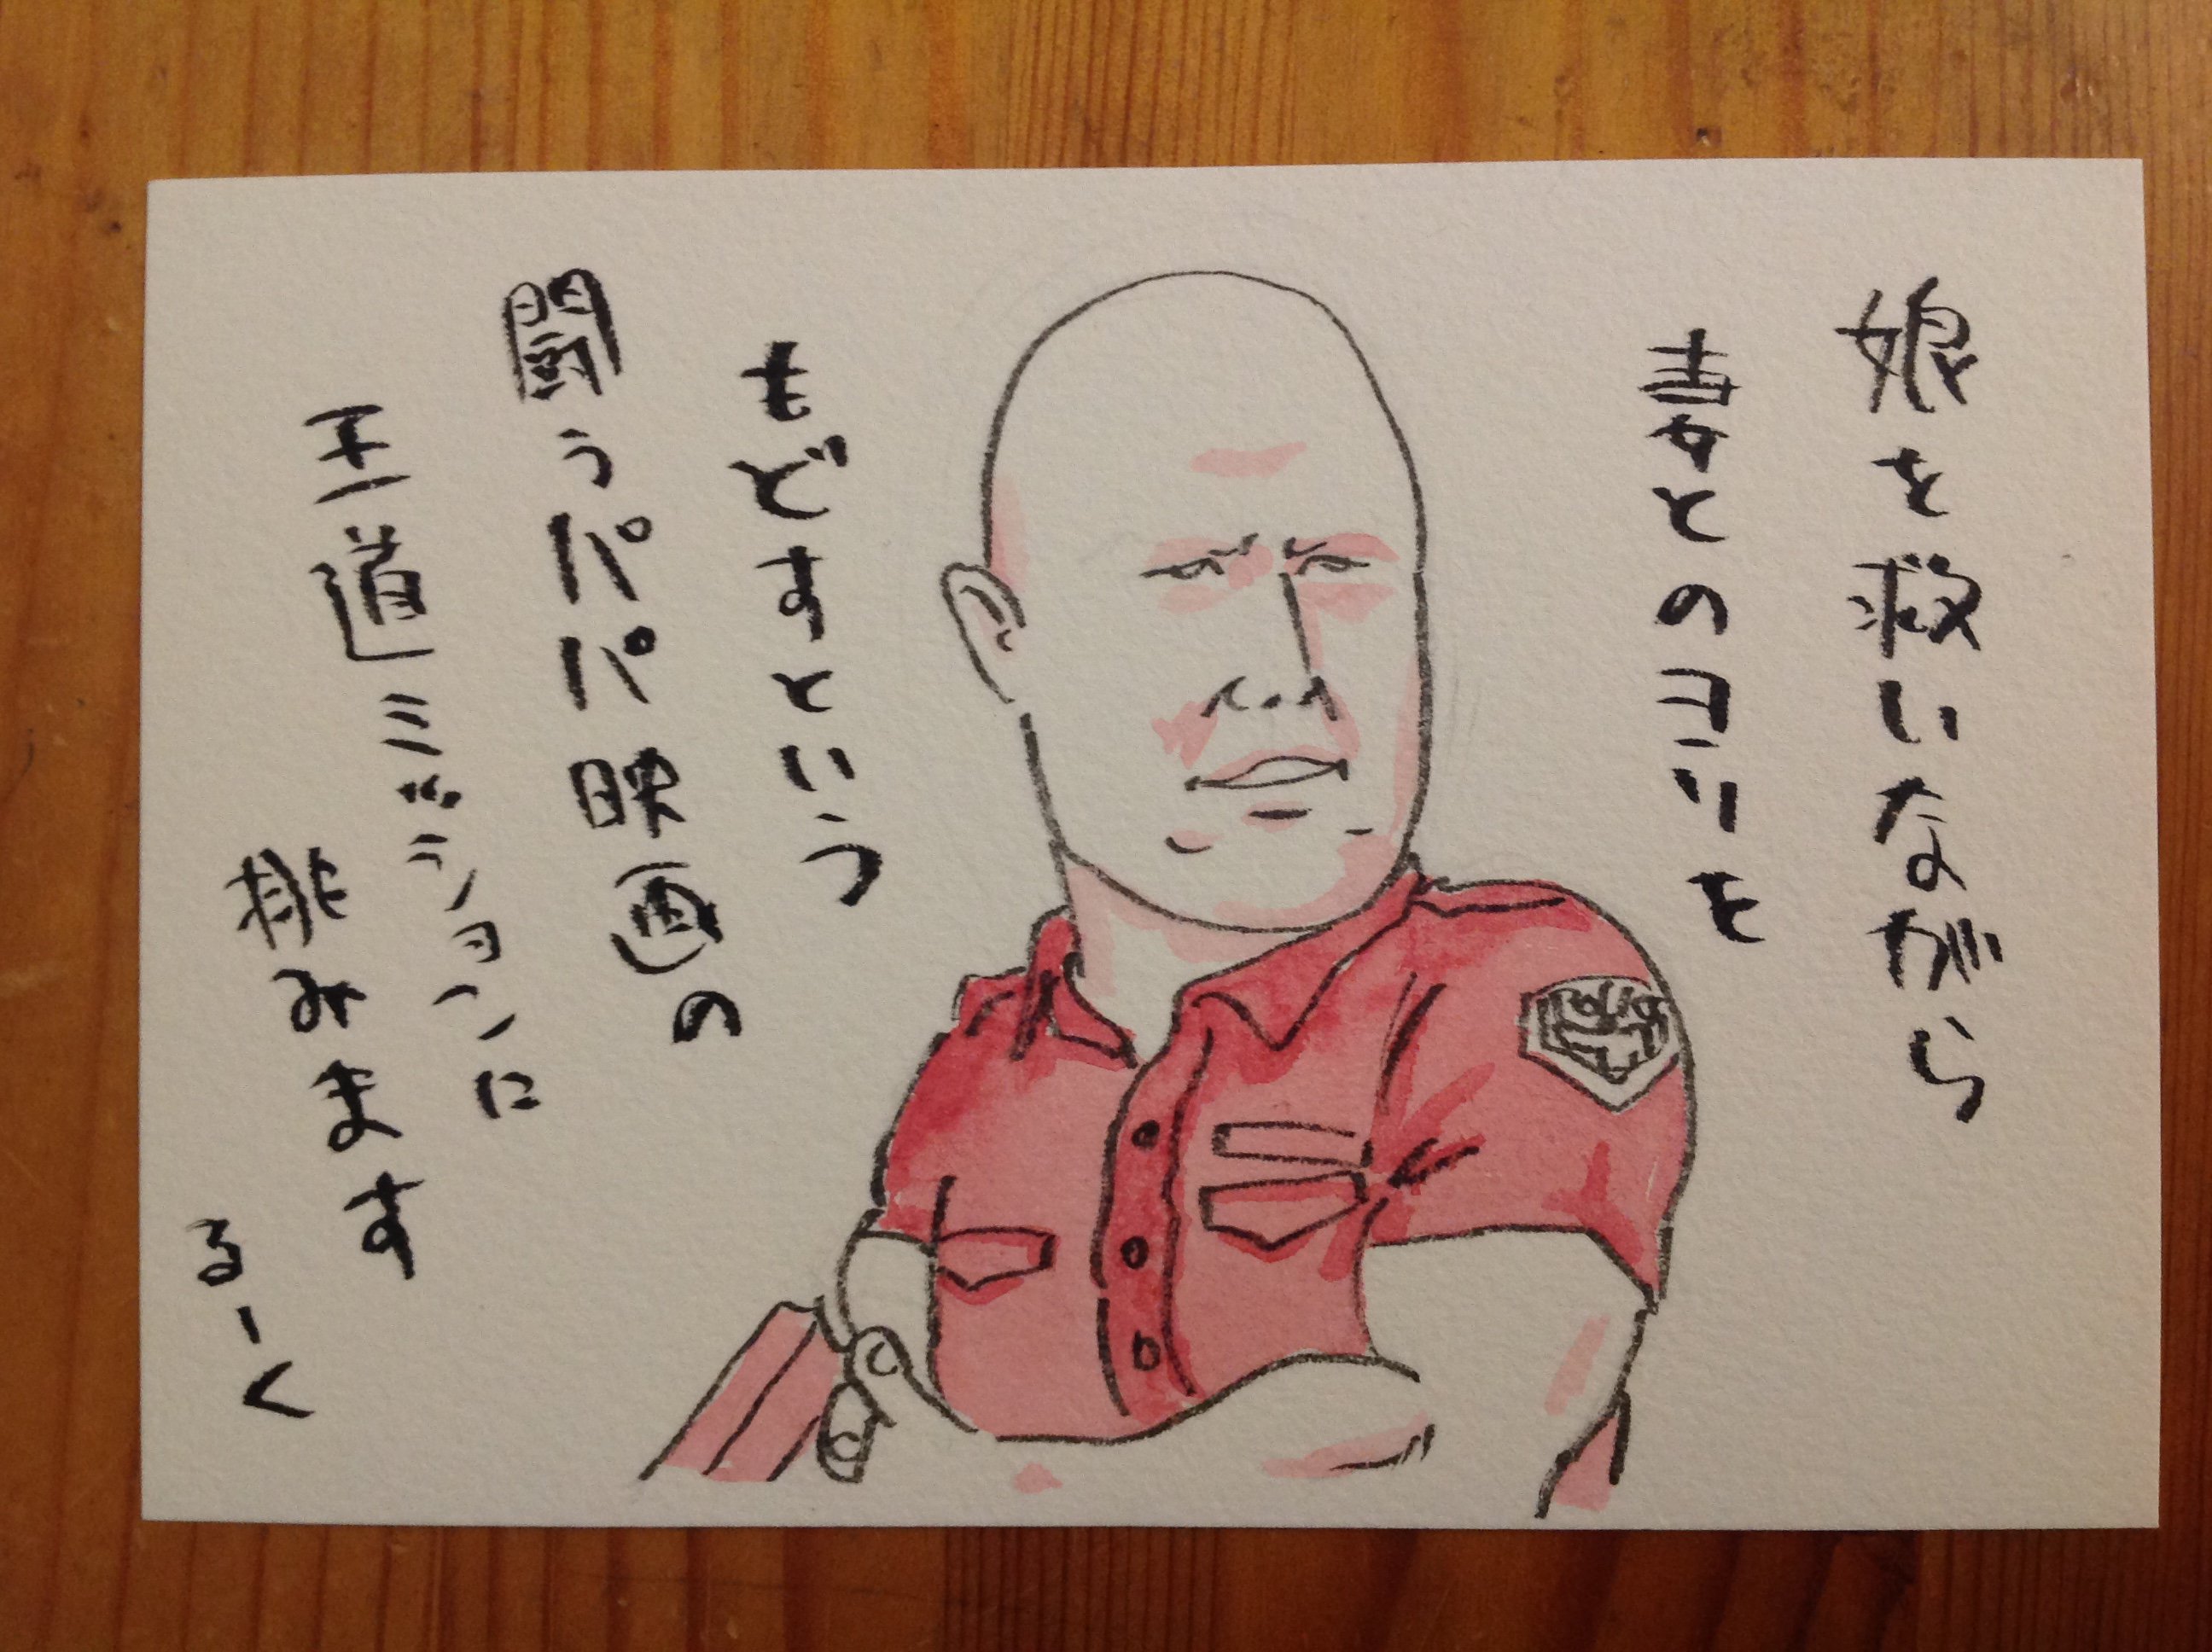 娘を救いながら
妻とのヨリを
もどすという
闘うパパ映画の
王道ミッションに
挑みます
るーく